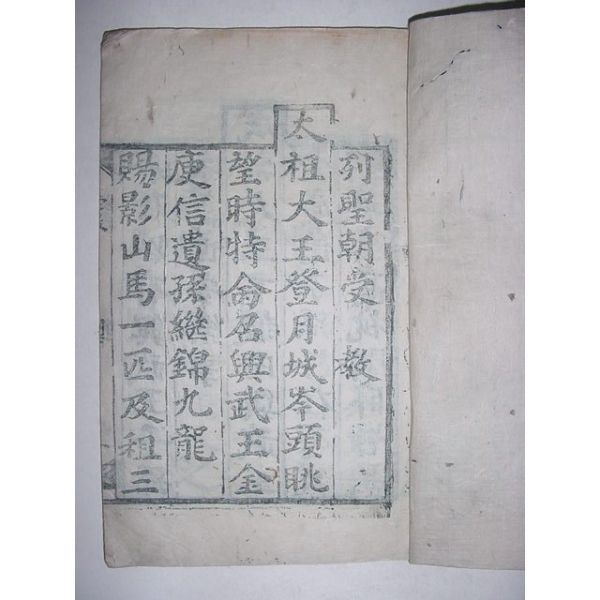 列聖朝受 教
太祖大王登月城岑頭眺
望時特命名興武王金
庾信遺孫繼錦九龍
賜影山馬一匹及租三